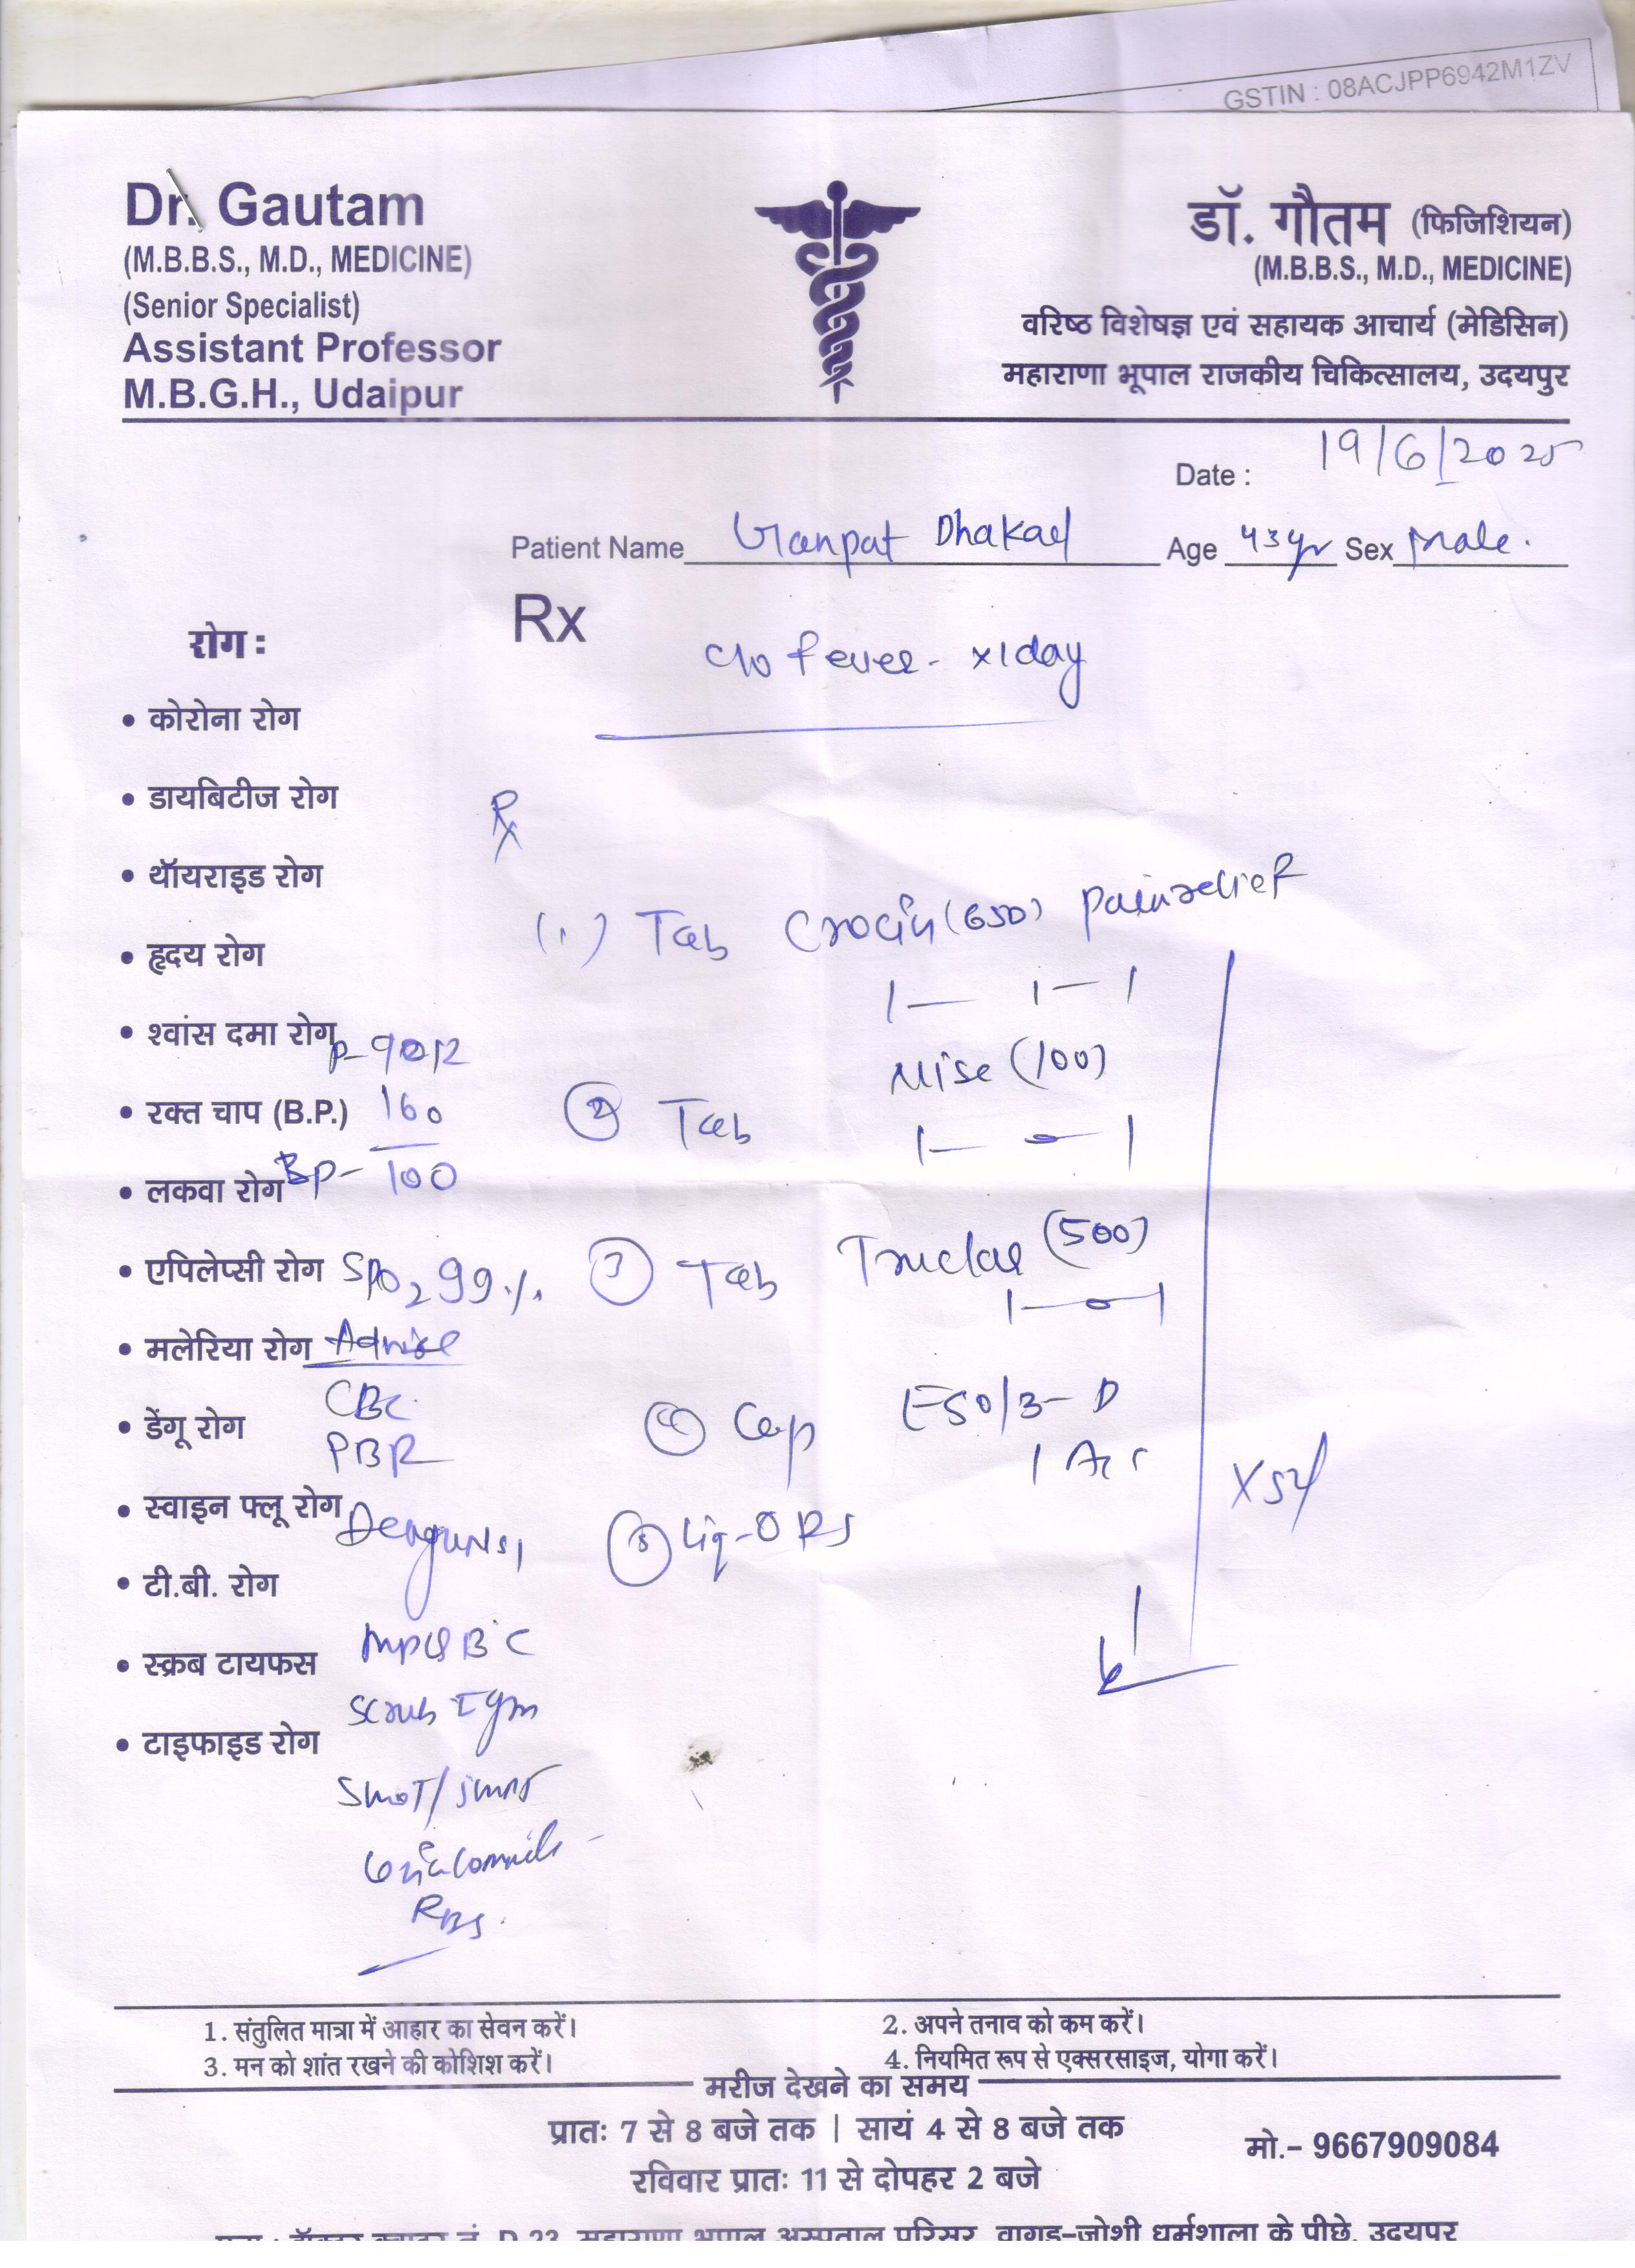 GSTIN : 08ACJPP6942M1ZV
Dr. Gautam
(M.B.B.S., M.D., MEDICINE)
(Senior Specialist)
Assistant Professor
M.B.G.H., Udaipur
डॉ. गौतम (फिजिशियन)
(M.B.B.S., M.D., MEDICINE)
वरिष्ठ विशेषज्ञ एवं सहायक आचार्य (मेडिसिन)
महाराणा भूपाल राजकीय चिकित्सालय, उदयपुर
Date : 19/6/2025
Patient Name Ganpat Dhakad Age 43yr Sex Male.
Rx
c/o fever - x1day
रोग :
• कोरोना रोग
• डायबिटीज रोग
• थॉयराइड रोग
• हृदय रोग
• श्वांस दमा रोग
• रक्त चाप (B.P.)
• लकवा रोग
• एपिलेप्सी रोग
• मलेरिया रोग
• डेंगू रोग
• स्वाइन फ्लू रोग
• टी.बी. रोग
• स्क्रब टायफस
• टाइफाइड रोग
160
BP- 100
SPO2 99%
Advise
CBC
PBR
Scrub Igm
RBS
Rx
(1) Tab Crocin (650) Pain relief
1 — 1 — 1
2 Tab Nise (100)
1 — 0 — 1
3 Tab (500)
1 — 0 — 1
4 Cap
5 Liq - ORS
1. संतुलित मात्रा में आहार का सेवन करें।
2. अपने तनाव को कम करें।
3. मन को शांत रखने की कोशिश करें।
4. नियमित रूप से एक्सरसाइज, योगा करें।
मरीज देखने का समय
प्रातः 7 से 8 बजे तक | सायं 4 से 8 बजे तक
रविवार प्रातः 11 से दोपहर 2 बजे
मो.- 9667909084
D-23, महाराणा भूपाल अस्पताल परिसर, वागड़-जोशी धर्मशाला के पीछे, उदयपुर